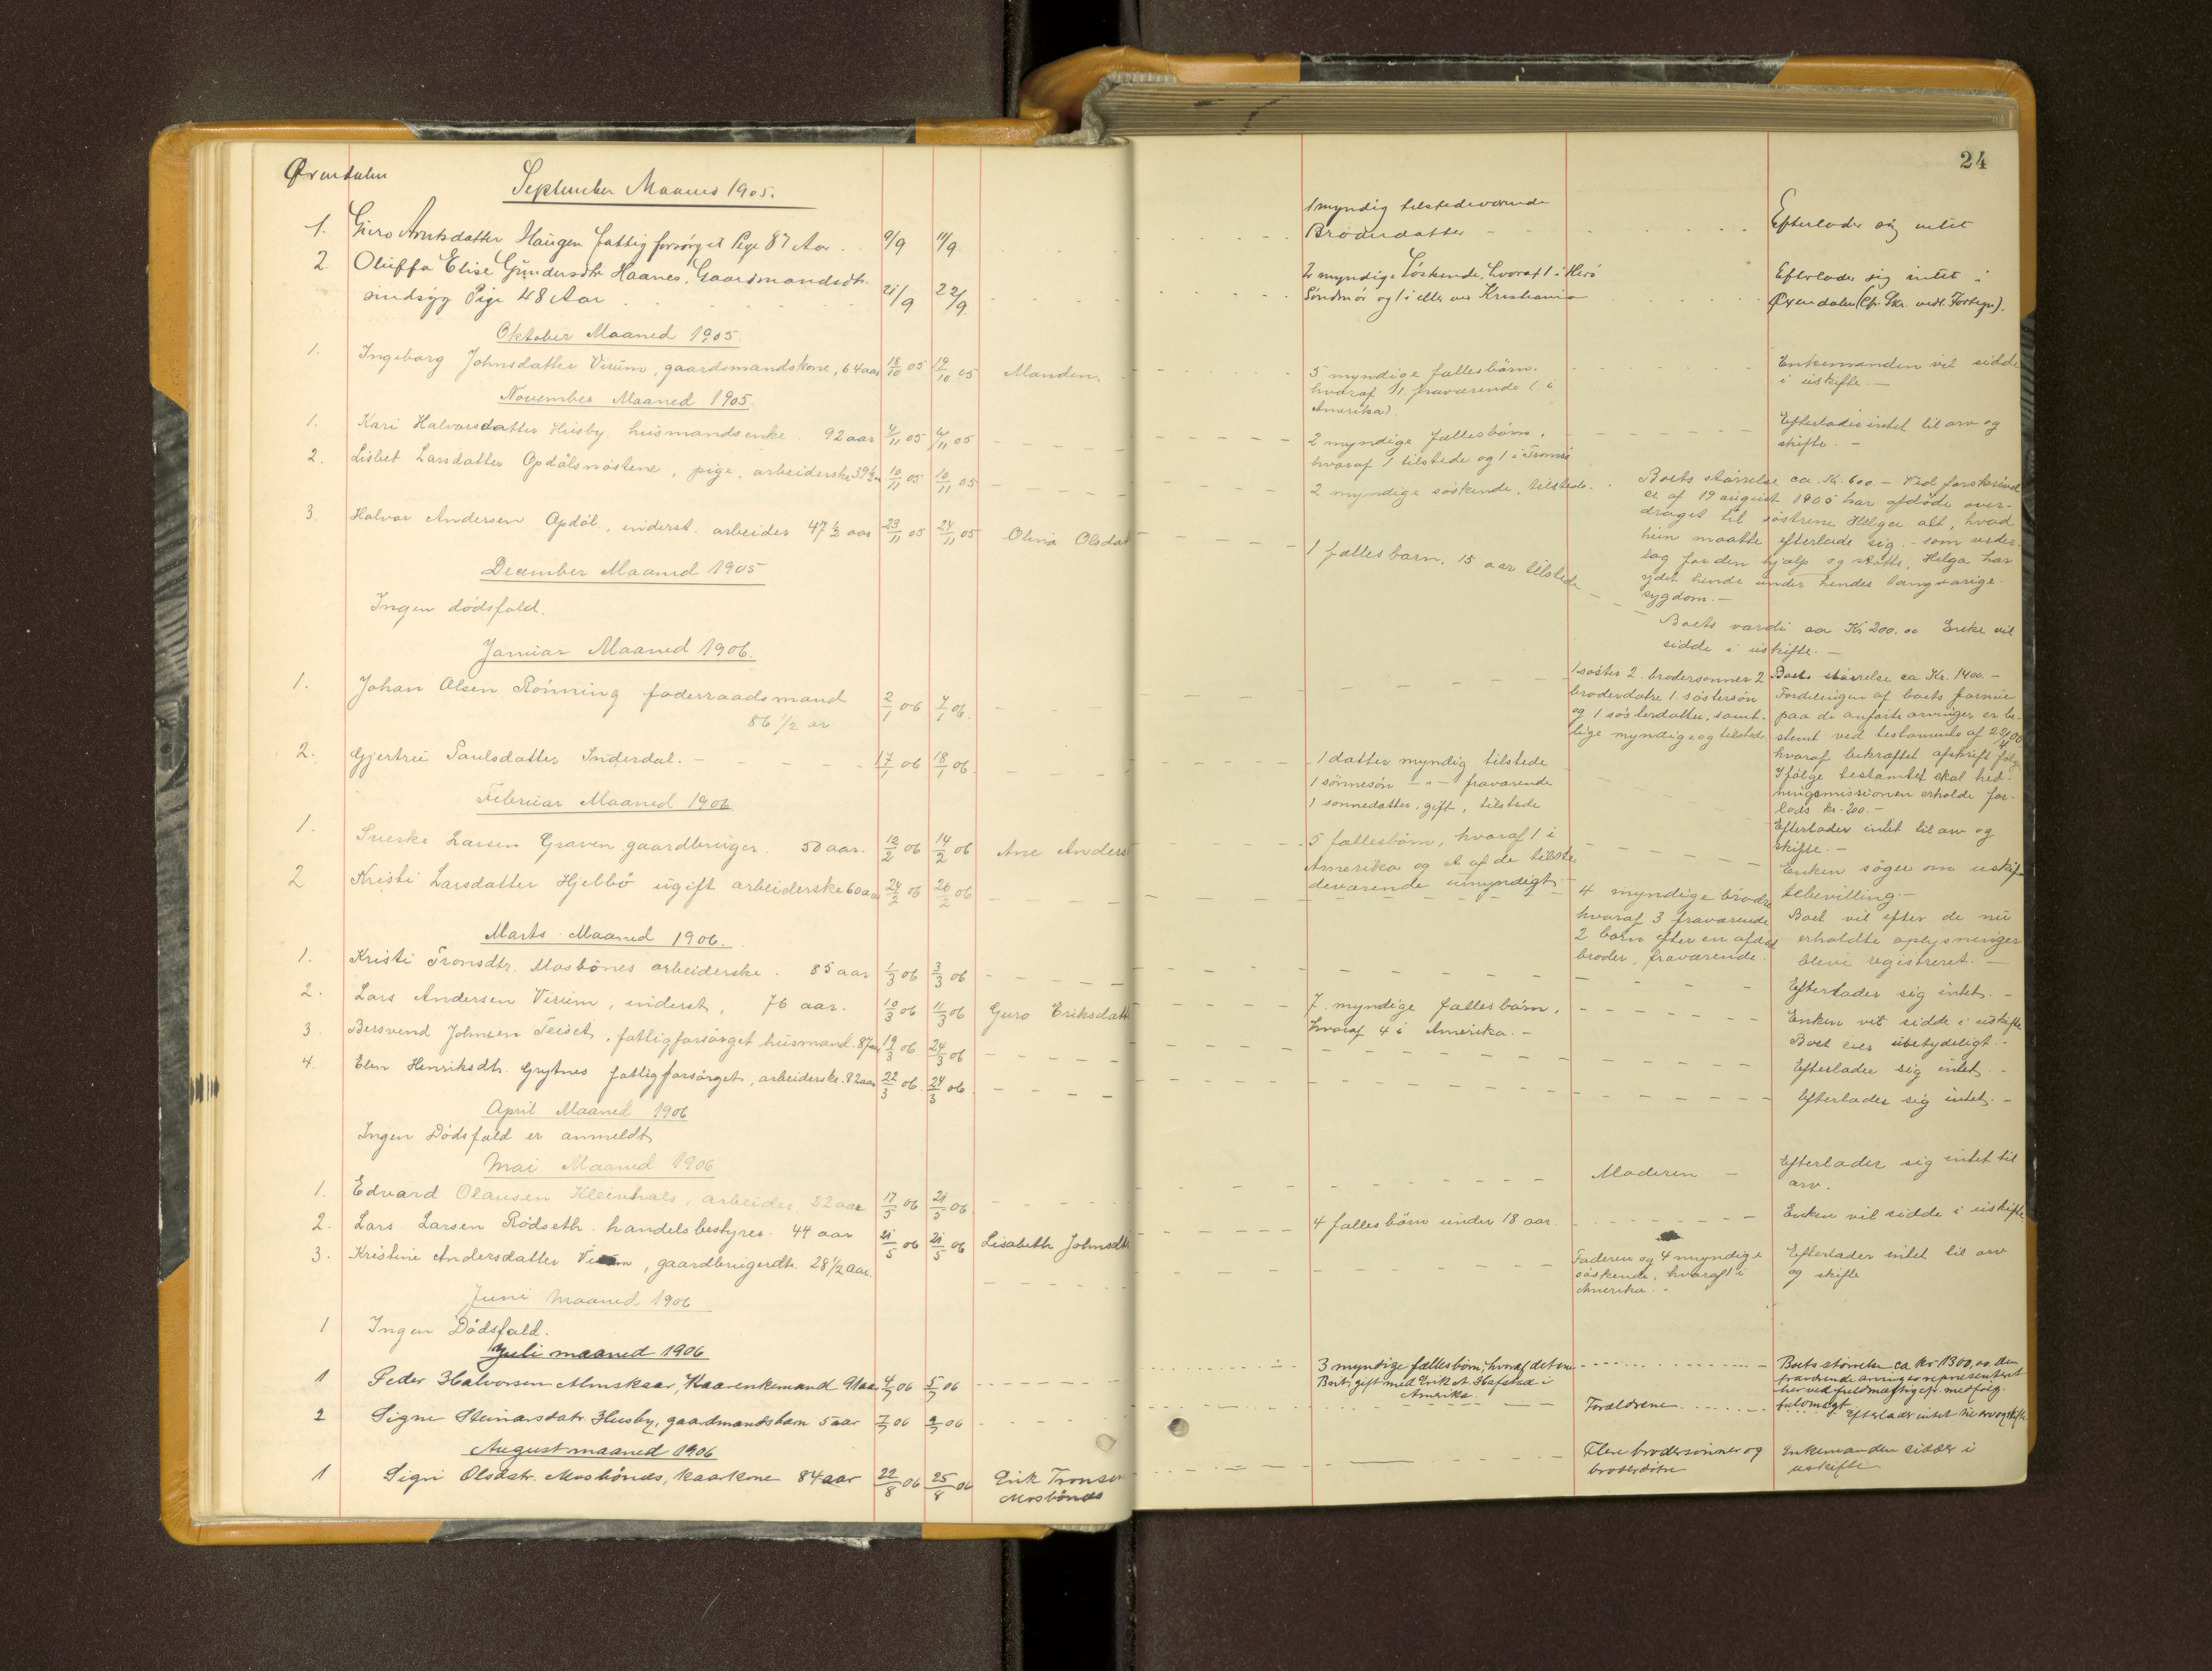 24
Øxendalen
September Maaned 1905.
1. Guro Arntsdatter Haugen fattigforsørget Pige 87 Aar . . 9/9 11/9
1 myndig tilstedeværende
Broderdatter
Efterlader sig intet
2. Oluffa Elise Gundersdtr Haanes, Gaardmandsdtr.
sindsyg Pige 48 Aar 21/9 22/9
2 myndige Søskende, hvoraf 1 i Herø
Søndmør og 1 i eller ved Kristiania
Efterlader sig intet i
Øxendalen (cfr. Skr. vedl. Fortegn).
Oktober Maaned 1905.
1. Ingeborg Johnsdatter Virum, gaardsmandskone, 64 aar 18/10 05 19/10 05 Manden.
5 myndige fællesbørn.
hvoraf 1 fraværende (i
Amerika).
Enkemanden vil sidde
i uskifte. —
November Maaned 1905.
1. Kari Halvorsdatter Husby husmandsenke. 92 aar 4/11 05 6/11 05
2 myndige fællesbørn,
hvoraf 1 tilstede og 1 i Tromsø
Efterlader intet til arv og
skifte. —
2. Lisbet Larsdatter Opdølsnøstene, pige, arbeiderske 39½ aar 10/11 05 10/11 05
2 myndige søskende, tilstede.
Boets størrelse ca. Kr. 600. —
af 19 august 1905 har afdøde over-
draget til søstrene Helga alt, hvad
hun maatte efterlade sig, – som veder-
lag for den hjælp og støtte, Helga har
ydet hende under hendes langvarige
sygdom. —
3. Halvor Andersen Opdøl, inderst. arbeider 47 ½ aar 23/11 05 24/11 05 Olina Olsdat
1 fællesbarn, 15 aar tilstede
Boets værdi ca Kr 200.00 Enke vil
sidde i uskifte. —
December Maaned 1905
Ingen dødsfald.
Januar Maaned 1906.
1. Johan Olsen Rønning føderraadsmand
86 ½ ar 2/1 06 7/1 06.
1 søster 2 brodersønner 2
broderdøtre 1 søstersøn
og 1 søsterdatter, samt-
lige myndige og tilstede
Boets størrelse ca Kr. 1400. —
Fordelingen af boets formue
paa de anførte arvinger er be-
stemt ved testamente af
hvoraf bekræftet afskrift følg
Ifølge testamtet skal hed-
ningemissionen erholde for-
lods kr. 200. —
2. Gjertru Paulsdatter Inderdal. — 17/1 06 18/1 06.
1 datter myndig tilstede
1 sønnesøn — " — fraværende
1 sønnedatter, gift, tilstede
Efterlader intet til arv og
skifte. —
Februar Maaned 1906
1. Sverke Larsen Graven gaardbruger. 50 aar. 12/2 06 14/2 06 Ane Anders
5 fællesbørn, hvoraf 1 i
Amerika og et af de tilste-
deværende umyndigt
Enken søger om uskif-
tebevilling. —
2 Kristi Larsdatter Hjelbø ugift arbeiderske 60 aar 24/2 06 26/2 06
4 myndige brødre
hvoraf 3 fraværende
2 børn efter en afdød
broder, fraværende.
Boet vil efter de nu
erholdte oplysninger
blive registreret. —
Marts Maaned 1906.
1. Kristi Tronsdtr. Mosbønes arbeiderske. 85 aar 1/3 06 3/3 06
Efterlader sig intet. —
2. Lars Andersen Virum, inderst, 76 aar. 10/3 06 11/3 06 Guro Eriksdatt
7 myndige fællesbørn,
hvoraf 4 i Amerika. —
Enken vil sidde i uskifte
Boet eier ubetydeligt. —
3. Bersvend Johnsen fattigforsørget husmand. 87 aar 19/3 06 24/3 06
Efterlader sig intet. —
4. Elen Henriksdtr. Grytnes fattigforsørget, arbeiderske. 82 aar 22/3 06. 24/3 06
Efterlader sig intet. —
April Maaned 1906
Ingen Dødsfald er anmeldt
Mai Maaned 1906
1. Edvard Olausen Kleivhals, arbeider. 22 aar 17/5 06 21/5 06.
Moderen —
Efterlader sig intet til
arv.
2. Lars Larsen Rødseth. handelsbestyrer. 44 aar 21/5 06 21/5 06 Lisabeth Johnsdtr
4 fællesbørn under 18 aar.
Enken vil sidde i uskifte
3. Kristine Andersdatter Virum, gaardbrugerdtr. 28½ aar.
Faderen og 4 myndige
søskende, hvoraf 1 i
Amerika. —
Efterlader intet til arv
og skifte
Juni Maaned 1906
1 Ingen Dødsfald.
Juli maaned 1906
1 Peder Halvorsen Almskaar, Kaarenkemand 91 aar 4/7 06 5/7 06
3 myndige fællesbørn, hvoraf det ene
Berit, gift med Erik A. Hafstad i
Amerika.
Boets størrelse ca kr 1300,00. Den
fraværende arving er representeret
her ved fuldmægtig cfr. medfølg.
fuldmagt.
2 Signe Steinarsdatr. Husby, gaardmandsbarn 5 aar 7/7 06 9/7 06
Forældrene
Efterlader intet til arv og skifte
August maaned 1906
1 Sigri Olsdatr. Mosbønes, kaarkone 84 aar 22/8 06 25/8 06 Erik Tronsen
Mosbønes
Flere brodersønner og
broderdøtre
Enkemanden sidder i
uskifte.